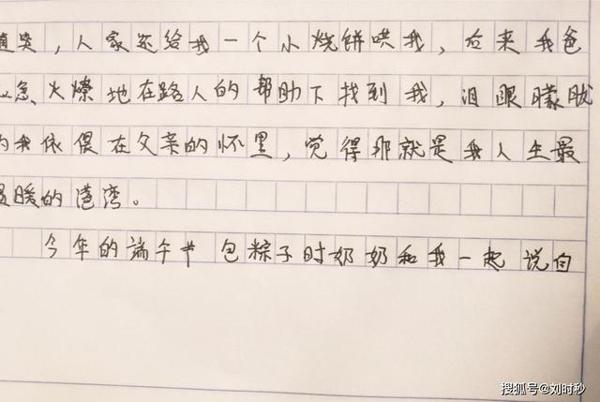 哭，人家还给我一个小烧饼哄我，后来我爸
急火燎地在路人的帮助下找到我，泪眼矇胧
的我依偎在父亲的怀里，觉得那就是我人生最
温暖的港湾。
今年的端午节包粽子时奶奶和我一起说向
搜狐号@刘时秒